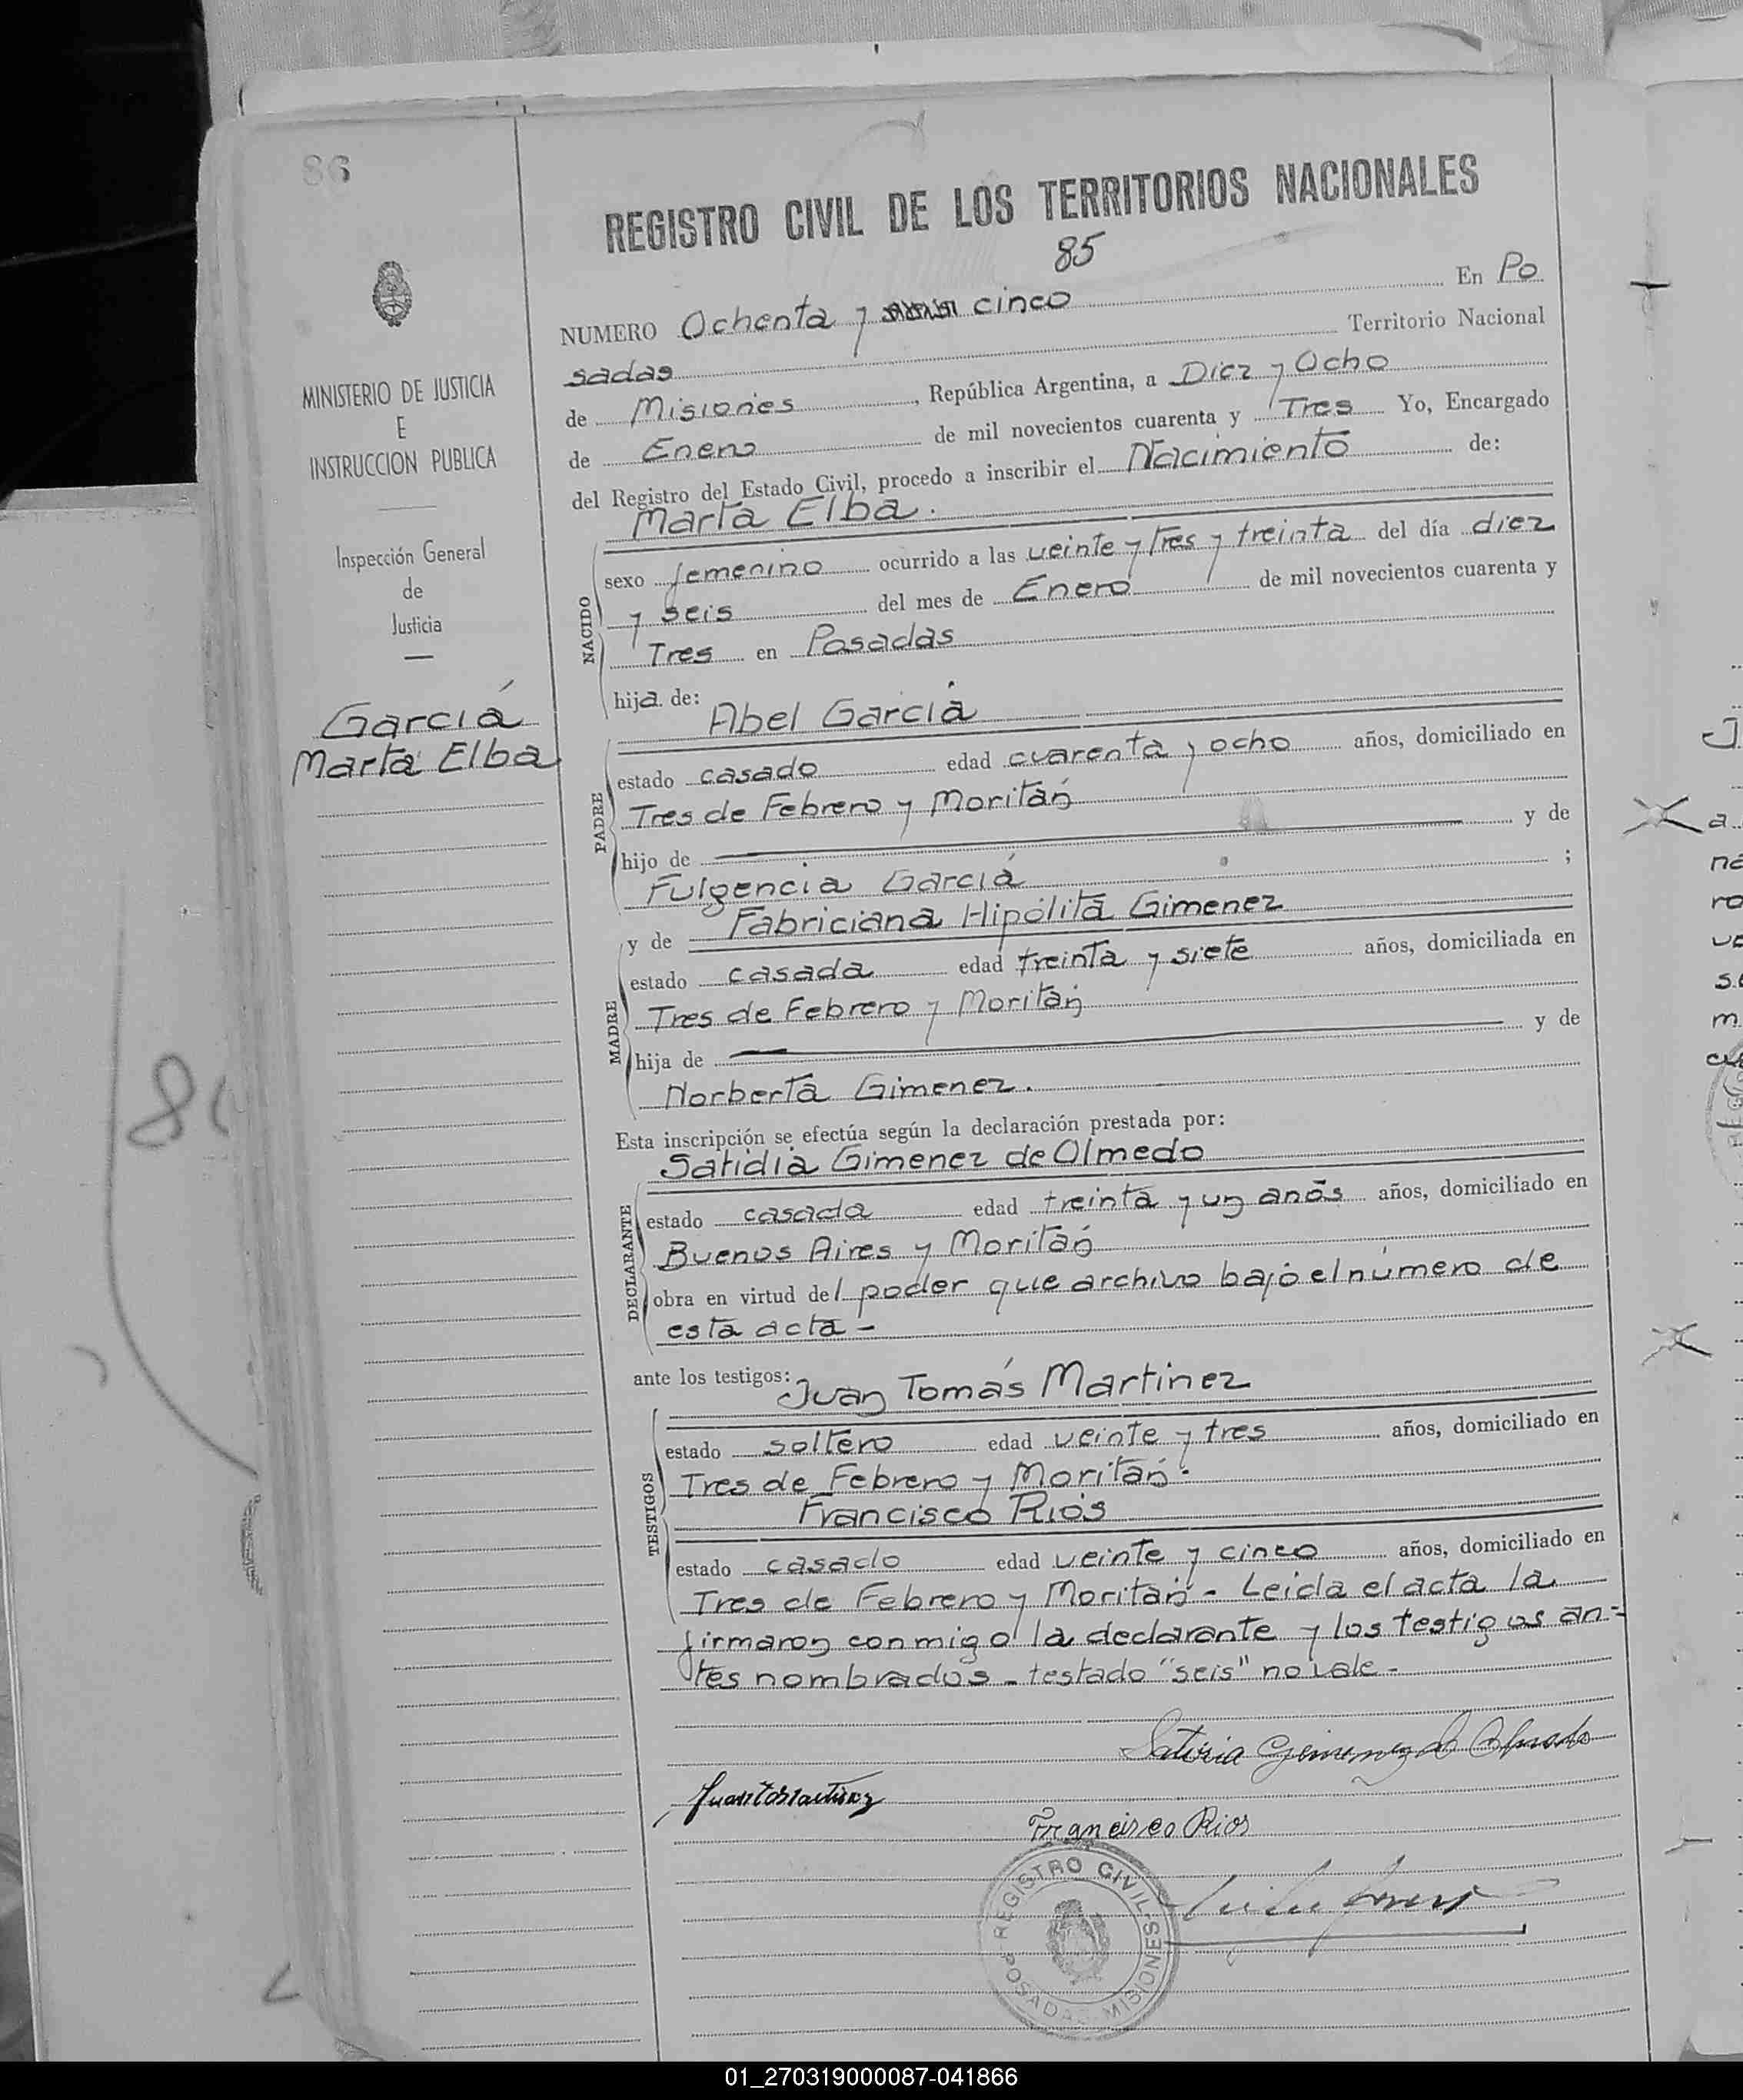 86
REGISTRO CIVIL DE LOS TERRITORIOS NACIONALES
85
NUMERO Ochenta y cinco En Po
sadas Territorio Nacional
de Misiones, República Argentina, a Diez y Ocho
de Enero de mil novecientos cuarenta y Tres Yo, Encargado
del Registro del Estado Civil, procedo a inscribir el Nacimiento de:
Marta Elba.
NACIDO
sexo femenino ocurrido a las veinte y tres y treinta del día diez
y seis del mes de Enero de mil novecientos cuarenta y
Tres en Posadas
hija de:
Abel Garciá
PADRE
estado casado edad cuarenta y ocho años, domiciliado en
Tres de Febrero y Moritán
hijo de y de
Fulgencia Garciá ;
y de Fabriciana Hipólita Gimenez
MADRE
estado casada edad treinta y siete años, domiciliada en
Tres de Febrero y Moritán
hija de y de
Norberta Gimenez.
Esta inscripción se efectúa según la declaración prestada por:
Satidia Gimenez de Olmedo
DECLARANTE
estado casada edad treinta y un anõs años, domiciliado en
Buenos Aires y Moritán
obra en virtud del poder que archivo bajo el número de
esta acta -
ante los testigos:
Juan Tomás Martinez
TESTIGOS
estado soltero edad veinte y tres años, domiciliado en
Tres de Febrero y Moritán.
Francisco Riós
estado casado edad veinte y cinco años, domiciliado en
Tres de Febrero y Moritán - Leida el acta la
firmaron conmigo la declarante y los testigos an-
tes nombrados - testado "seis" no vale -
Satiria Gimenez de Olmedo
Juan T Martinez
Francisco Rios
REGISTRO CIVIL
POSADAS MISIONES
MINISTERIO DE JUSTICIA
E
INSTRUCCION PUBLICA
Inspección General
de
Justicia
Garciá
Marta Elba
01_270319000087-041866